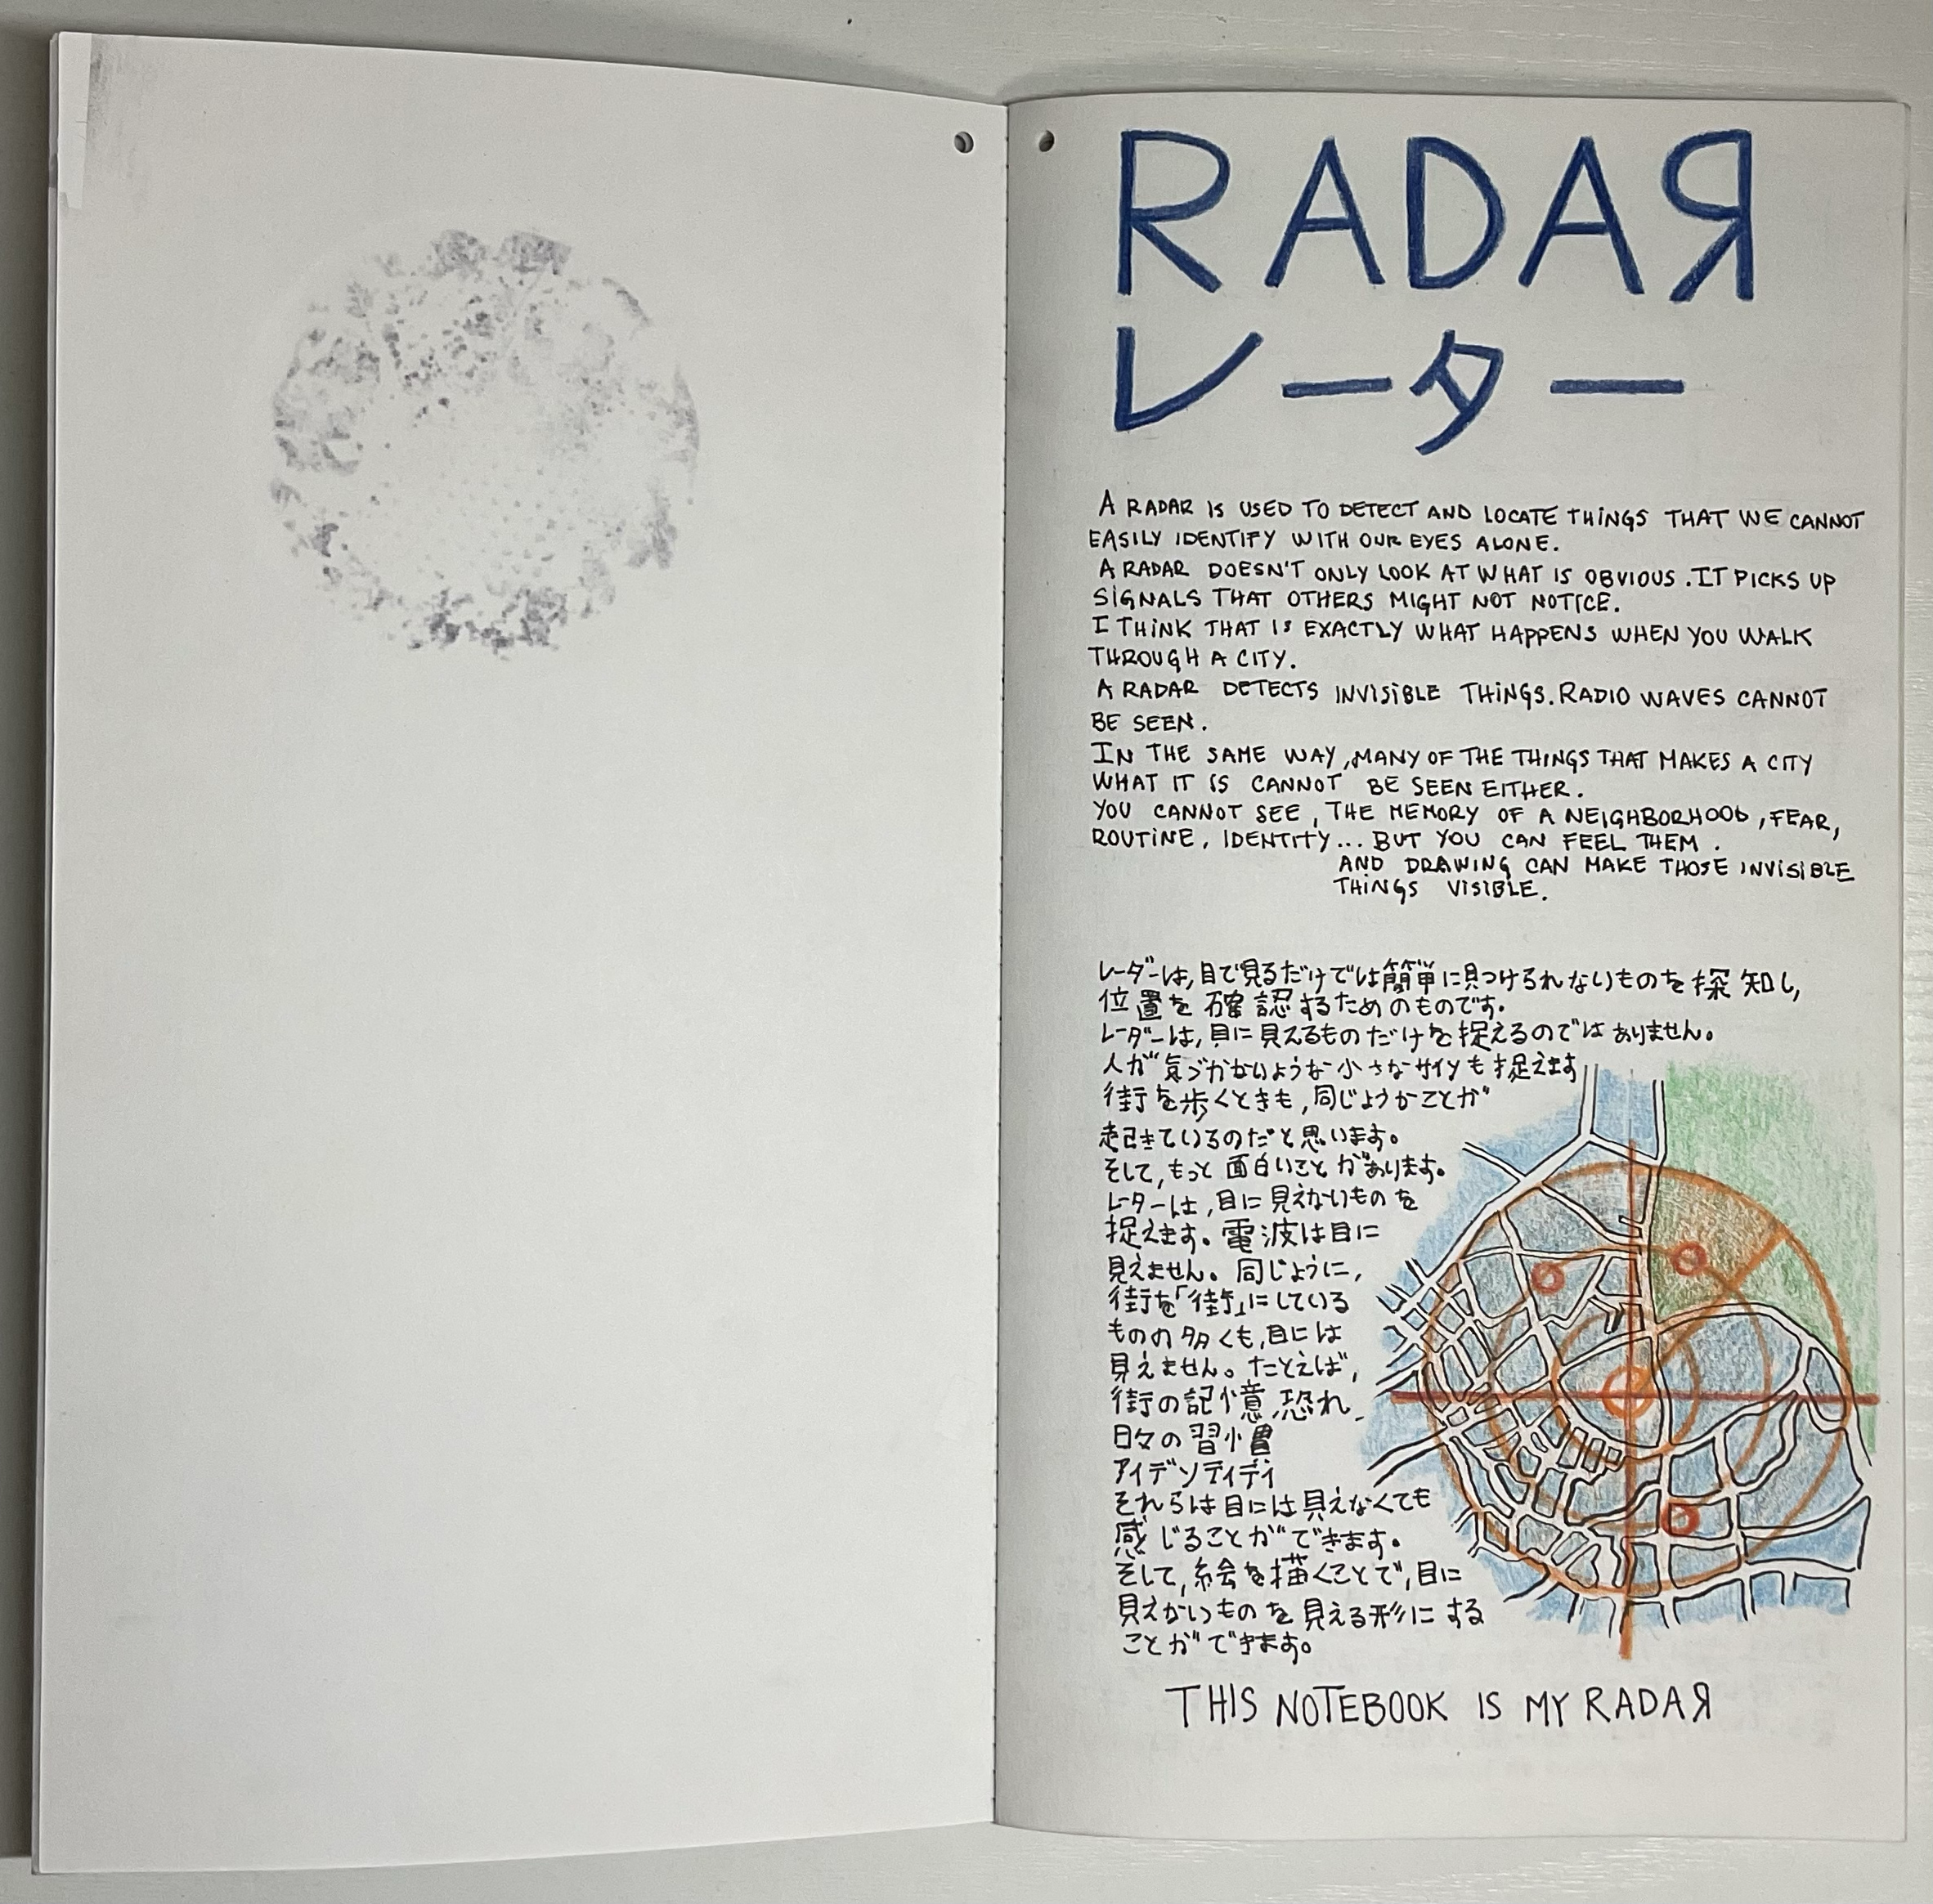 RADAR
レーター
A RADAR IS USED TO DETECT AND LOCATE THINGS THAT WE CANNOT
EASILY IDENTIFY WITH OUR EYES ALONE.
A RADAR DOESN'T ONLY LOOK AT WHAT IS OBVIOUS. IT PICKS UP
SIGNALS THAT OTHERS MIGHT NOT NOTICE.
I THINK THAT IS EXACTLY WHAT HAPPENS WHEN YOU WALK
THROUGH A CITY.
A RADAR DETECTS INVISIBLE THINGS. RADIO WAVES CANNOT
BE SEEN.
IN THE SAME WAY, MANY OF THE THINGS THAT MAKES A CITY
WHAT IT IS CANNOT BE SEEN EITHER.
YOU CANNOT SEE, THE MEMORY OF A NEIGHBORHOOD, FEAR,
ROUTINE, IDENTITY... BUT YOU CAN FEEL THEM.
AND DRAWING CAN MAKE THOSE INVISIBLE
THINGS VISIBLE.
レーダーは,目で見るだけでは簡単に見つけるれないものを探知し,
位置を確認するためのものです。
レーダーは,目に見えるものだけを捉えるのではありません。
人が気づかないような小さなサインも捉えます
街を歩くときも,同じようかことが
起きているのだと思います。
そして,もっと面白いことがあります。
レーターは,目に見えないものを
捉えます。電波は目に
見えません。同じように,
街を「街」にしている
ものの多くも,目には
見えません。たとえば,
街の記憶,恐れ,
日々の習慣
アイデンティティ
それらは目には見えなくても
感じることができます。
そして,絵を描くことで,目に
見えかいものを見える形にする
ことができます。
THIS NOTEBOOK IS MY RADAR